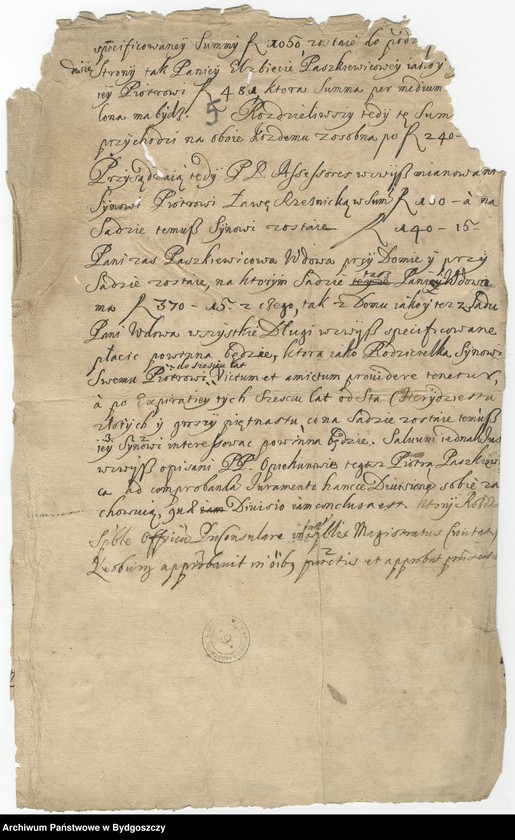 specificowaney Summy fl. 1050, zostaie do podz
dwie Strony tak Paniey Elzbiecie Paszkiewicowey iako y
iey Piotrowi fl. 481 ktora Summa per medium
lona ma bydz. Rozdzieliwszy tedy tę Sum
przychodzi na oboie kozdemu zosobna po fl. 240-
5
Przysądzaią tedy PP. Assessores wzwyß mianowane
Synowi Piotrowi Ławę Rzeźnicką w Sum fl. 100 - à na
Sadzie temuß Synowi zostaie fl. 140 - 15-
Pani zas Paszkiewicowa Wdowa przy Domie y przy
Sadzie zostaie, na ktorym Sadzie taż Pani Wdowa
ma fl. 370 - 15. z czego, tak z Domu iako y tez z Sadu
Pani Wdowa wszystkie Długi wzwyß specificowane
płacic powinna będzie, ktora iako Rodzicielka Synowi
Swemu Piotrowi do szesciu lat Victum et amictum providere tenetur,
à po Expiratiey tych Szesciu lat od Sta Czterydziestu
złotych y groszy piętnastu, co na Sadzie zostaie temuß
iey Synowi interessować powinna będzie. Salvum iednak
wzwyß opisani PP. Opiekunowie tegoz Piotra Paszkiewi
ca ad comprobanda Juramento hancce Divisionē sobie za
chowuią, Divisio iam conclusa est
Officiū Magistratus Civitatis
approbavit in oībq punctis et approbat